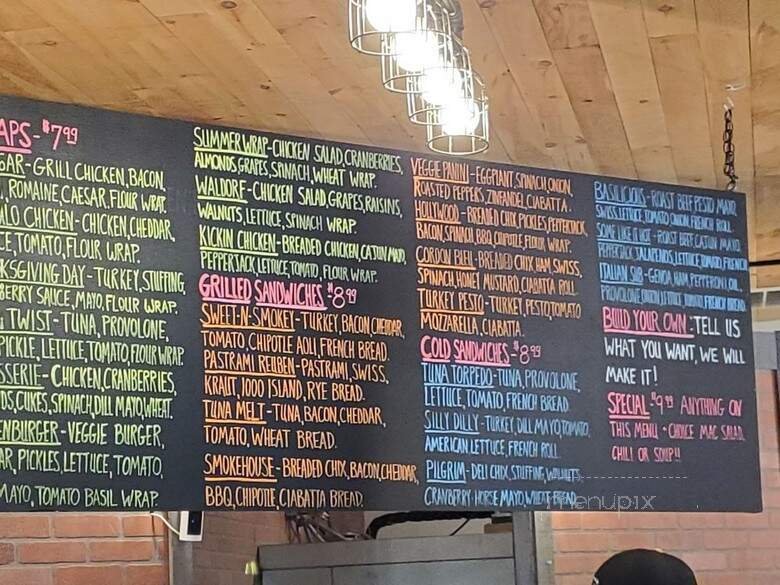 APS - $7.99
SAR - GRILL CHICKEN, BACON,
ROMAINE CAESAR, FLOUR WRAP.
LO CHICKEN - CHICKEN, CHEDDAR,
CE, TOMATO, FLOUR WRAP.
KSGIVING DAY - TURKEY, STUFFING,
BERRY SAUCE, MAYO, FLOUR WRAP.
TWIST - TUNA, PROVOLONE,
PICKLE, LETTUCE, TOMATO, FLOUR WRAP
SSERIE - CHICKEN, CRANBERRIES,
DS, CUKES, SPINACH, DILL MAYO, WHEAT.
ENBURGER - VEGGIE BURGER,
AR, PICKLES, LETTUCE, TOMATO,
MAYO, TOMATO BASIL WRAP.
SUMMER WRAP - CHICKEN SALAD, CRANBERRIES,
ALMONDS, GRAPES, SPINACH, WHEAT WRAP.
WALDORF - CHICKEN SALAD, GRAPES, RAISINS,
WALNUTS, LETTUCE, SPINACH WRAP.
KICKIN CHICKEN - BREADED CHICKEN, CAJUN MAYO,
PEPPERJACK, LETTUCE, TOMATO, FLOUR WRAP.
GRILLED SANDWICHES - $8.99
SWEET-N-SMOKEY - TURKEY, BACON, CHEDDAR,
TOMATO, CHIPOTLE AOLI, FRENCH BREAD.
PASTRAMI REUBEN - PASTRAMI, SWISS,
KRAUT, 1000 ISLAND, RYE BREAD.
TUNA MELT - TUNA, BACON, CHEDDAR,
TOMATO, WHEAT BREAD.
SMOKEHOUSE - BREADED CHIX, BACON, CHEDDAR,
BBQ, CHIPOTLE, CIABATTA BREAD.
VEGGIE PANINI - EGGPLANT, SPINACH, ONION,
ROASTED PEPPERS, ZINFANDEL, CIABATTA.
HOLLYWOOD - BREADED CHIX, PICKLES, PEPPERJACK
BACON, SPINACH, BBQ, CHIPOTLE, FLOUR WRAP.
CORDON BLEU - BREADED CHIX, HAM, SWISS,
SPINACH, HONEY MUSTARD, CIABATTA ROLL.
TURKEY PESTO - TURKEY, PESTO, TOMATO
MOZZARELLA, CIABATTA.
COLD SANDWICHES - $8.99
TUNA TORPEDO - TUNA, PROVOLONE,
LETTUCE, TOMATO, FRENCH BREAD.
SILLY DILLY - TURKEY, DILL MAYO, TOMATO,
AMERICAN, LETTUCE, FRENCH ROLL.
PILGRIM - DELI CHIX, STUFFING, WALNUTS,
CRANBERRY HORSE MAYO, WHEAT BREAD.
BASILICIOUS - ROAST BEEF, PESTO MAYO,
SWISS, LETTUCE, TOMATO, ONION, FRENCH ROLL.
SOME LIKE IT HOT - ROAST BEEF, CAJUN MAYO,
PEPPERJACK, JALAPENOS, LETTUCE, TOMATO, FRENCH
ITALIAN SUB - GENOA, HAM, PEPPERONI, OIL,
PROVOLONE, ONION, LETTUCE, TOMATO, FRENCH
BUILD YOUR OWN: TELL US
WHAT YOU WANT, WE WILL
MAKE IT!
SPECIAL $9.99 ANYTHING ON
THIS MENU + CHOICE MAC SALAD,
CHILI OR SOUP!!
menupix